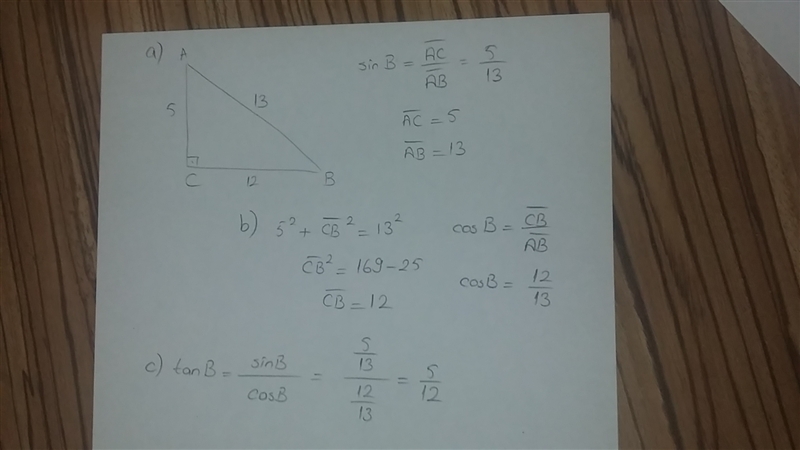 a) A
5
13
C
12
B
sin B = \overline{AC}/\overline{AB} = 5/13
\overline{AC} = 5
\overline{AB} = 13
b) 5² + \overline{CB}² = 13²
\overline{CB}² = 169 - 25
\overline{CB} = 12
cos B = \overline{CB}/\overline{AB}
cosB = 12/13
c) tanB = sinB/cosB = (5/13)/(12/13) = 5/12